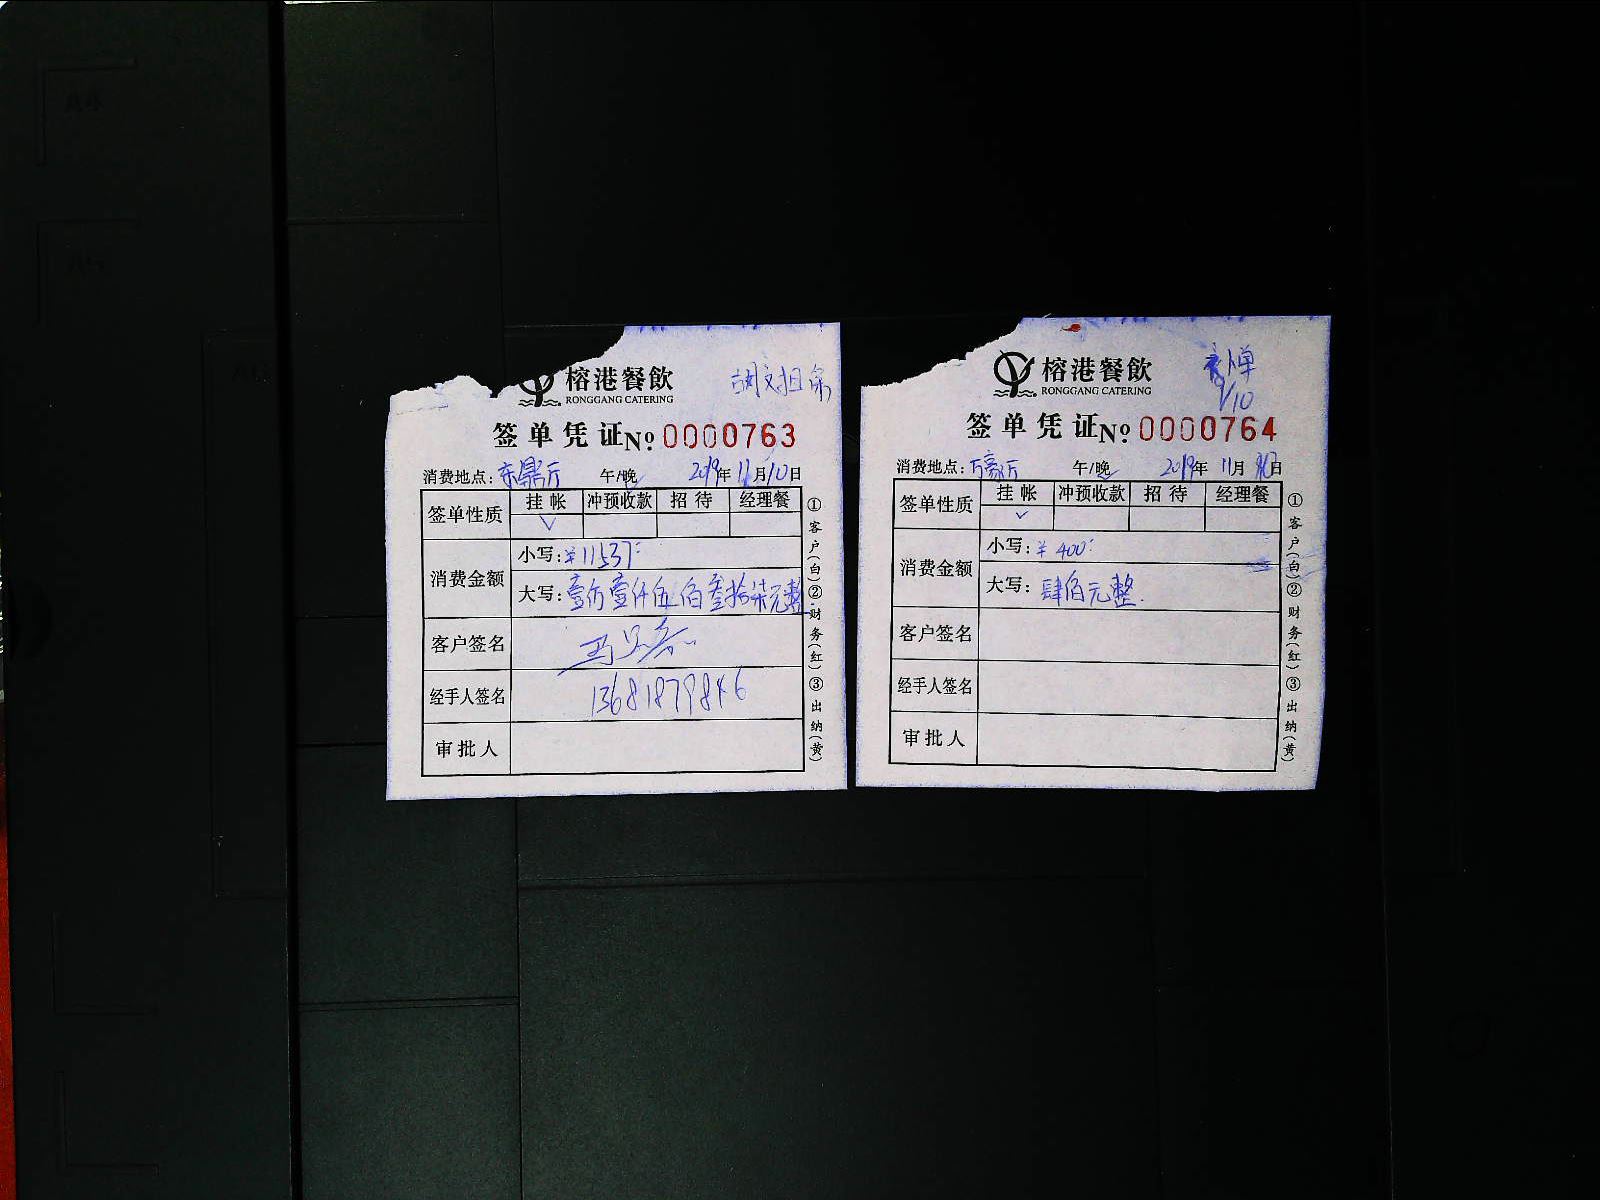 榕港餐飲
RONGGANG CATERING
签单凭证 No 0000763
消费地点: 东鼎厅 午/晚 2019年11月10日
签单性质 挂帐 冲预收款 招待 经理餐
✓
消费金额
小写: ¥11537
大写: 壹仿壹仟伍佰叁拾柒元整
客户签名
经手人签名 13681879846
审批人
①客户(白)②财务(红)③出纳(黄)
榕港餐飲
RONGGANG CATERING
9/10
签单凭证 No 0000764
消费地点: 万豪厅 午/晚 2019年11月 日
签单性质 挂帐 冲预收款 招待 经理餐
✓
消费金额
小写: ¥400
大写: 肆佰元整.
客户签名
经手人签名
审批人
①客户(白)②财务(红)③出纳(黄)